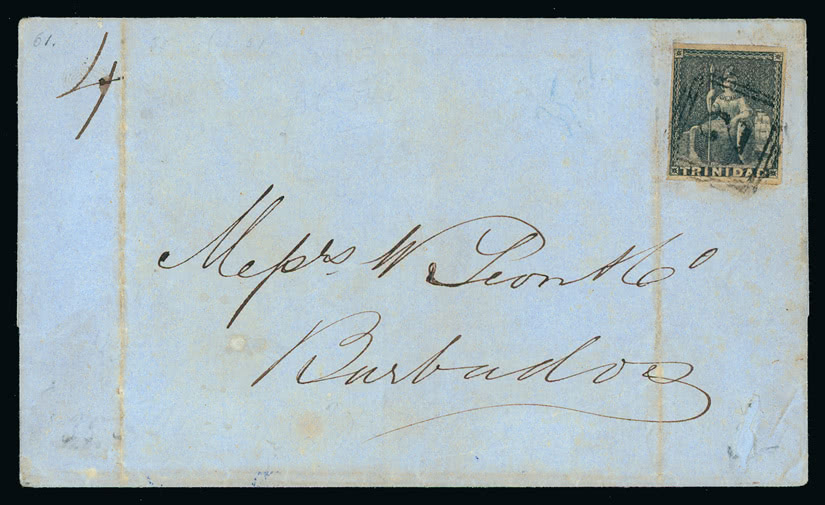 61.
4
TRINIDAD
Messrs. W. Leon & Co
Barbados